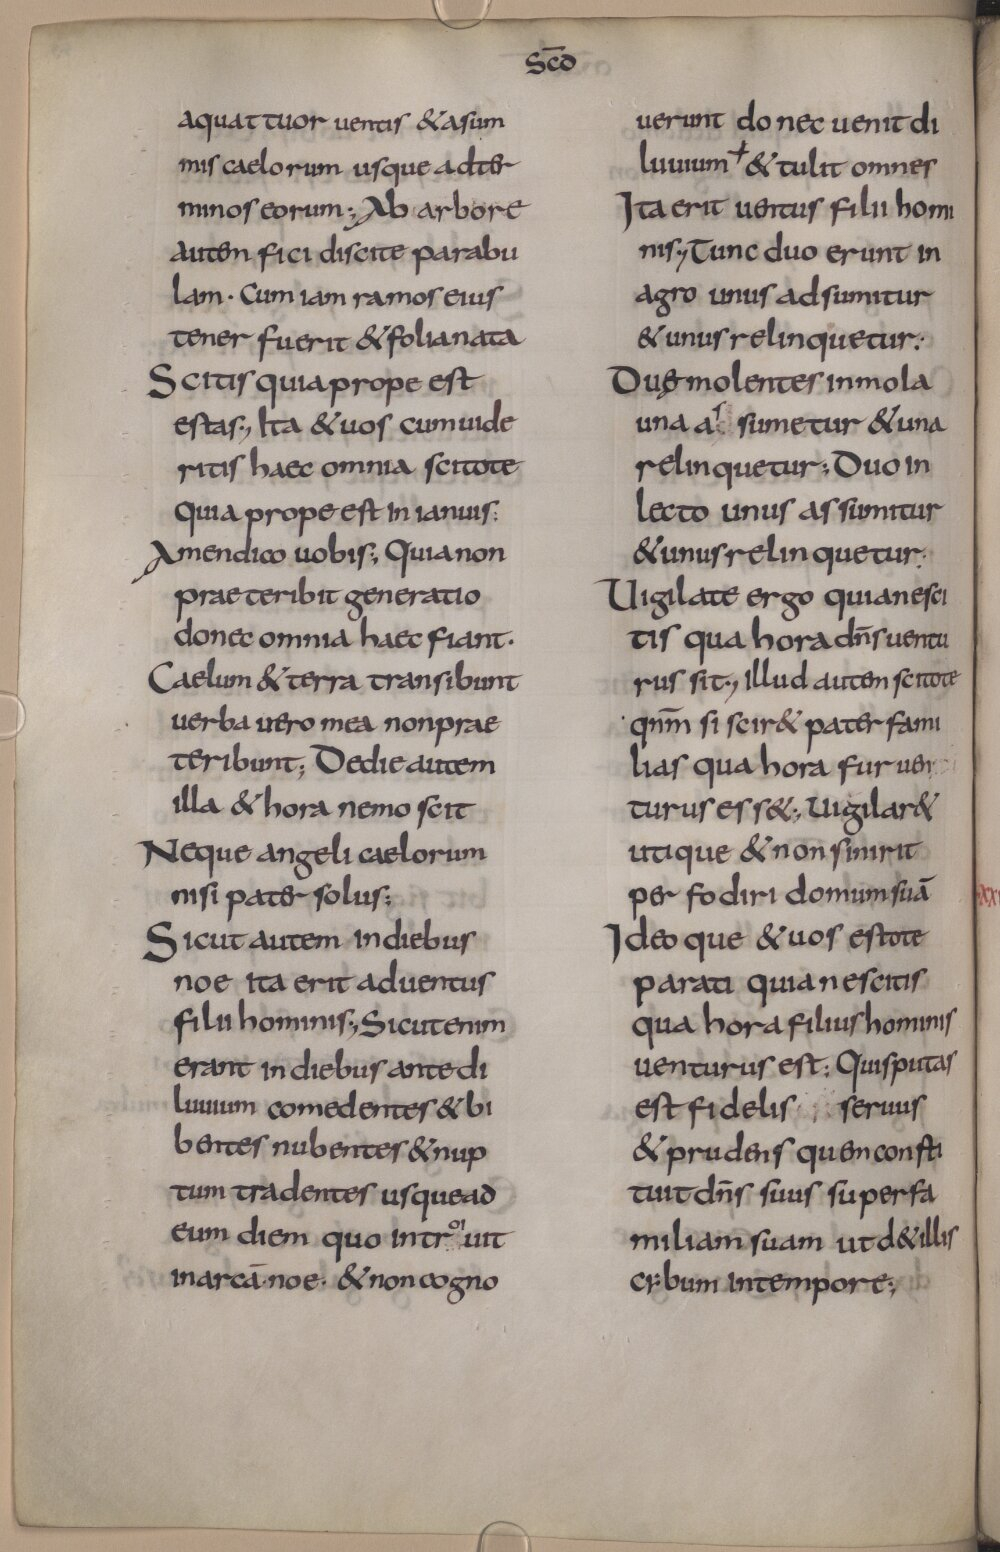 Scd̄
aquattuor uentis & asum
mis caelorum usque adter
minos eorum; Ab arbore
autem fici discite parabu
lam. Cum iam ramos eius
tener fuerit & folia nata
Scitis quia prope est
estas; Ita & uos cum uide
ritis haec omnia scitote
quia prope est in ianuis;
Amen dico uobis; Quia non
praeteribit generatio
donec omnia haec fiant.
Caelum & terra transibunt
uerba uero mea non prae
teribunt; Dedie autem
illa & hora nemo scit
Neque angeli caelorum
nisi pater solus;
Sicut autem in diebus
noe ita erit aduentus
filii hominis; Sicut enim
erant in diebus ante di
luuium comedentes & bi
bentes nubentes & nup
tum tradentes usque ad
eum diem quo introiuit
in arcā noe. & non cogno
uerunt donec uenit di
luuium + & tulit omnes
Ita erit uentus filii homi
nis; Tunc duo erunt in
agro unus adsumitur
& unus relinquetur;
Duę molentes in mola
una as sumetur & una
relinquetur; Duo in
lecto unus assumitur
& unus relinquetur;
Uigilate ergo quia nesci
tis qua hora dn̄s uentu
rus sit; Illud autem scitote
qnm̄ si scir& pater fami
lias qua hora fur uen
turus ess&; Uigilar&
utique & non sinirit
perfodiri domum suā
Ideoque & uos estote
parati quia nescitis
qua hora filius hominis
uenturus est; Quis putas
est fidelis seruus
& prudens quem consti
tuit dn̄s suus super fa
miliam suam ut d& illis
cibum in tempore;